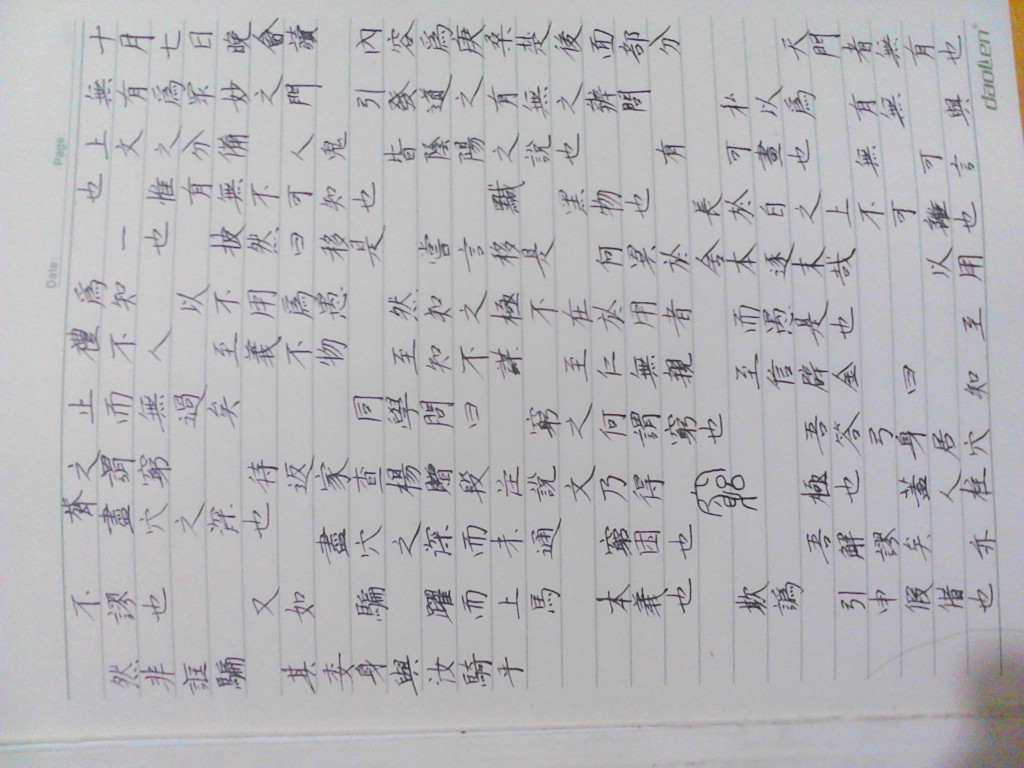 Date:
Page:
十月七日晚會讀 內容爲庚桑楚後面部分 天門者無有也
無有爲眾妙之門 引發道之有無之辨問 私以爲 有無 與
上文之分備 人鬼 皆陰陽之說也 有 可畫也 無 可言
也 惟有無不可知也 黬 黑物也 長於白之上不可離也
一也 披然曰移是 嘗言移是 何異於舍本逐末哉 以用
爲知 以不用爲愚 然知之極不在於用者 而愚是也 至
禮不人 至義不物 至知不謀 至仁無親 至信辟金 曰 知
止而無過矣 同學問曰 窮之何謂窮也 吾答弓身居穴
之謂窮 待返家查楊贈段注說文乃得 極也 蓋人柱
聲盡穴之深也 盡穴之深而未通 窮困也 吾解謬矣 亦
不謬也 又如 騙 躍而上馬 本義也 欺譌 引申假借也
然非誆騙 其委身與汝騎乎
daolen